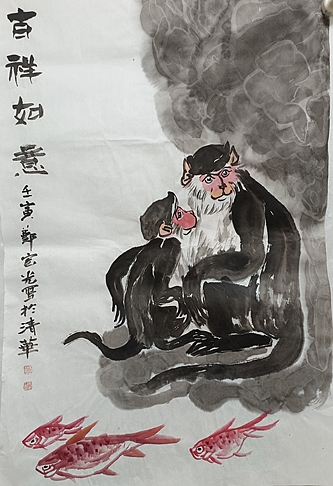 吉祥如意
壬寅鄭宏光寫於清華